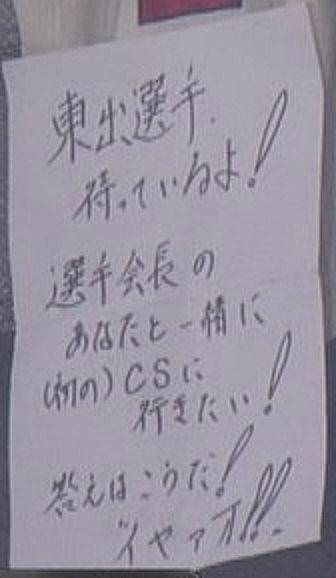 東出選手.
待っているよ!
選手会長の
あなたと一緒に
(初の)CSに
行きたい!
答えはこうだ!
イヤァオ!!